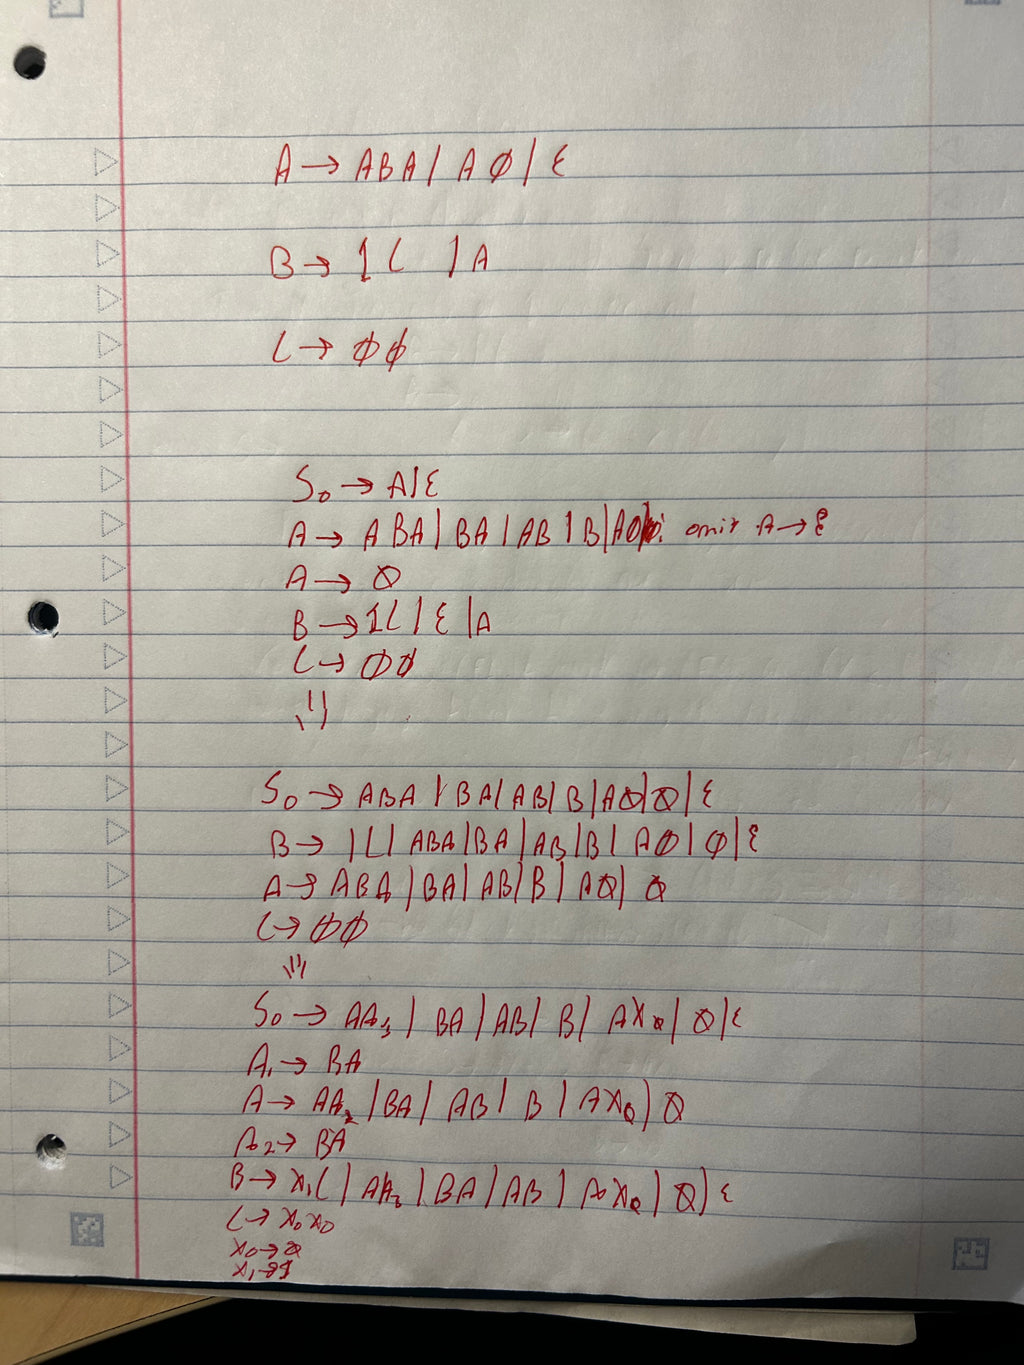 A → ABA | A∅ | ε
B → 1C | A
C → ∅∅
S₀ → A|ε
A → ABA | BA | AB | B | A0 omit A → ε
A → ∅
B → 1C | ε | A
C → ∅∅
S₀ → ABA | BA | AB | B | A∅ | ∅ | ε
B → 1C | ABA | BA | AB | B | A∅ | ∅ | ε
A → ABA | BA | AB | B | A∅ | ∅
C → ∅∅
S₀ → AA₁ | BA | AB | B | AX₀ | ∅ | ε
A₁ → BA
A → AA₂ | BA | AB | B | AX₀ | ∅
A₂ → BA
B → X₁C | AA₃ | BA | AB | AX₀ | ∅ | ε
C → X₀X₀
X₀ → ∅
X₁ → 1